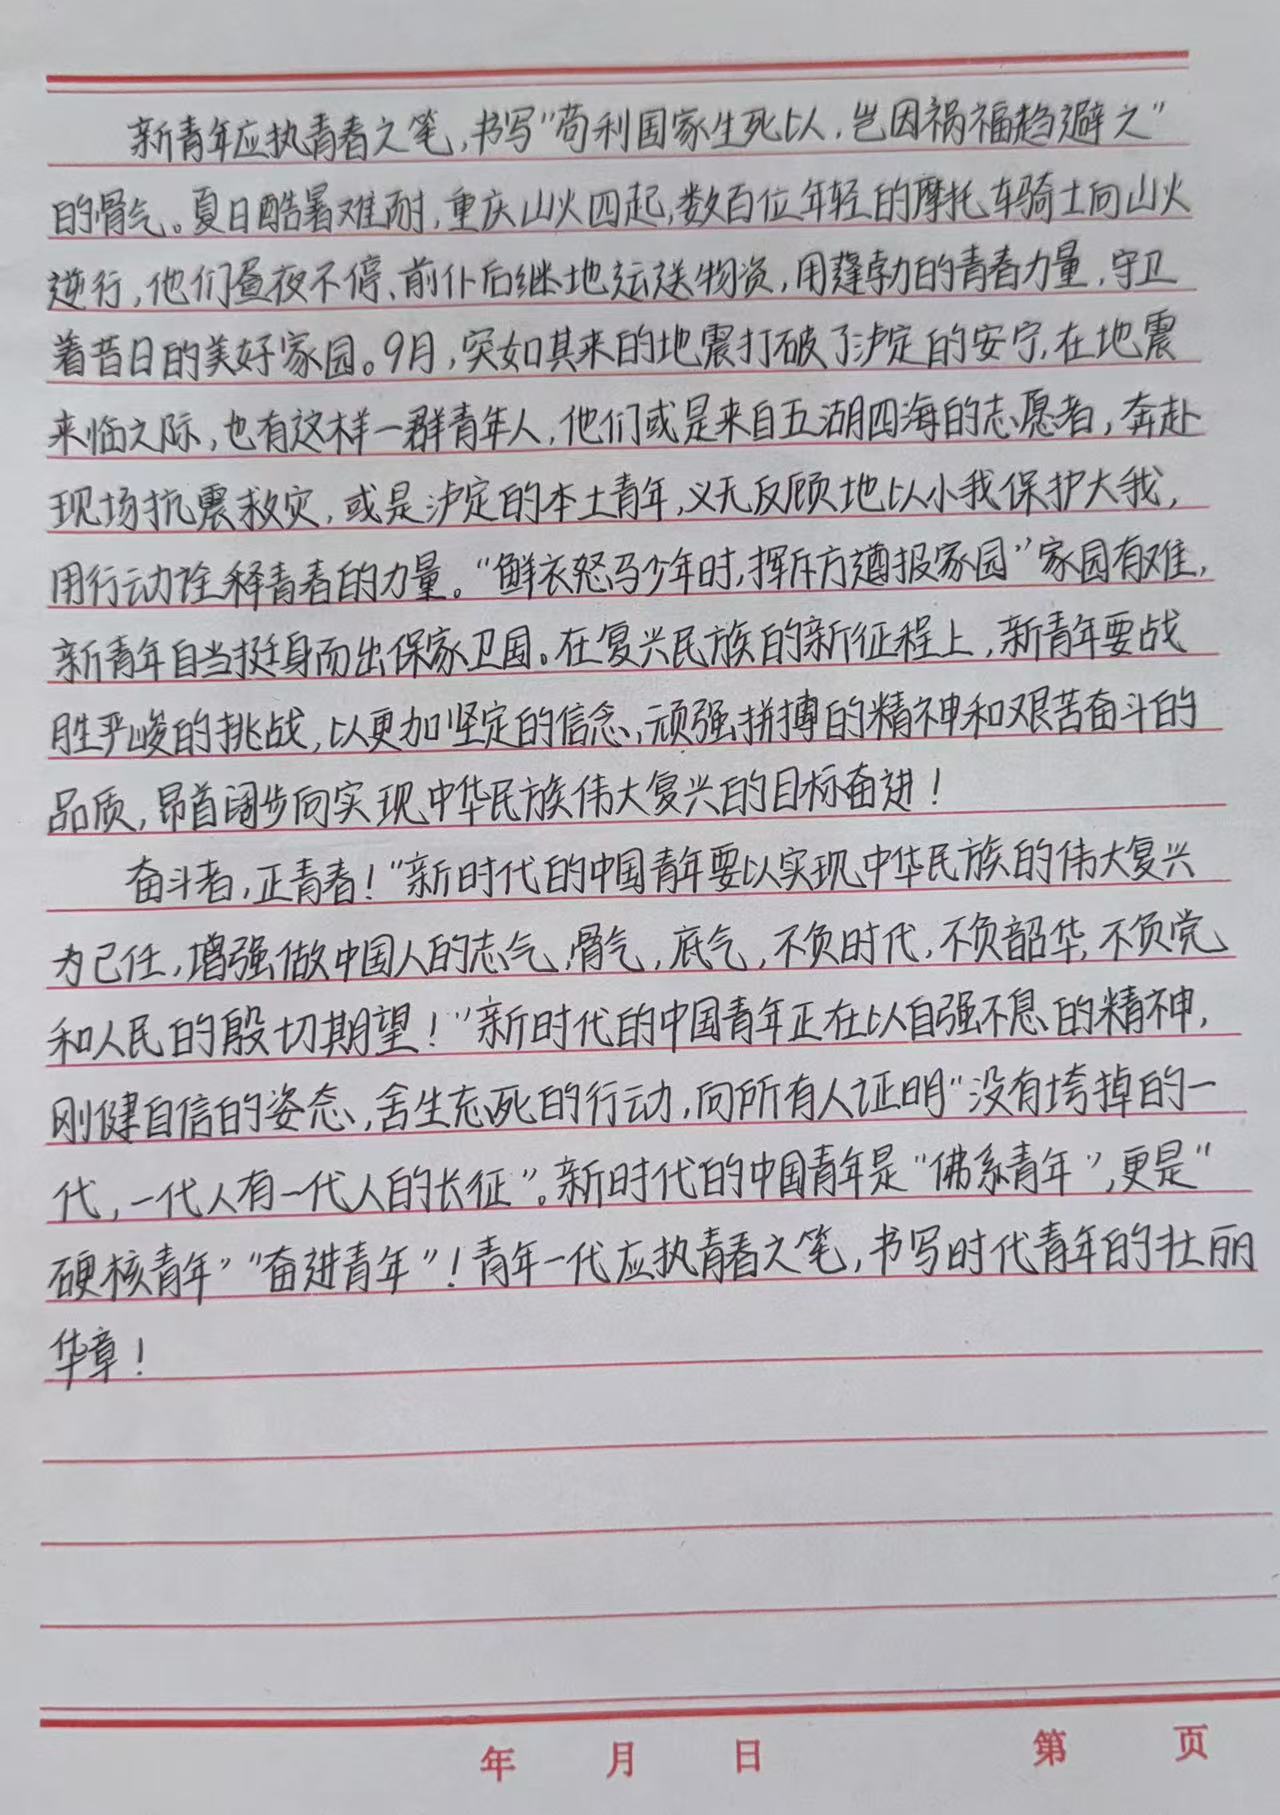 新青年应执青春之笔,书写“苟利国家生死以,岂因祸福趋避之”
的骨气。夏日酷暑难耐,重庆山火四起,数百位年轻的摩托车骑士向山火
逆行,他们昼夜不停、前仆后继地运送物资,用蓬勃的青春力量,守卫
着昔日的美好家园。9月,突如其来的地震打破了泸定的安宁,在地震
来临之际,也有这样一群青年人,他们或是来自五湖四海的志愿者,奔赴
现场抗震救灾,或是泸定的本土青年,义无反顾地以小我保护大我,
用行动诠释青春的力量。“鲜衣怒马少年时,挥斥方遒报家园”家园有难,
新青年自当挺身而出保家卫国。在复兴民族的新征程上,新青年要战
胜严峻的挑战,以更加坚定的信念、顽强拼搏的精神和艰苦奋斗的
品质,昂首阔步向实现中华民族伟大复兴的目标奋进!
奋斗者,正青春!“新时代的中国青年要以实现中华民族的伟大复兴
为己任,增强做中国人的志气,骨气,底气,不负时代,不负韶华,不负党
和人民的殷切期望!”新时代的中国青年正在以自强不息的精神,
刚健自信的姿态、舍生忘死的行动,向所有人证明“没有垮掉的一
代,一代人有一代人的长征”。新时代的中国青年是“佛系青年”,更是“
硬核青年”“奋进青年”!青年一代应执青春之笔,书写时代青年的壮丽
华章!
年 月 日 第 页